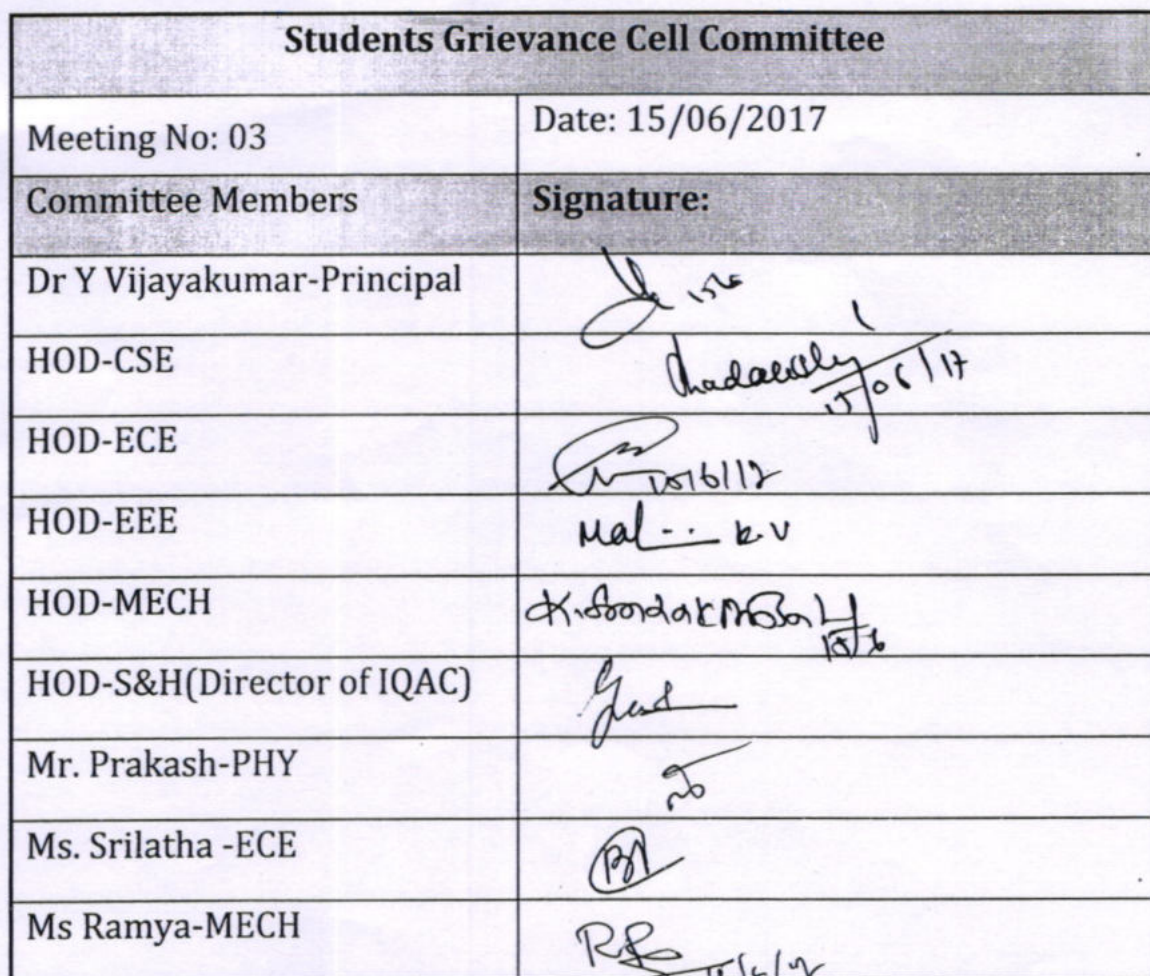 Students Grievance Cell Committee
Meeting No: 03
Date: 15/06/2017
Committee Members
Signature:
Dr Y Vijayakumar-Principal
HOD-CSE
15/06/17
HOD-ECE
HOD-EEE
K.V
HOD-MECH
HOD-S&H(Director of IQAC)
Mr. Prakash-PHY
Ms. Srilatha -ECE
Ms Ramya-MECH